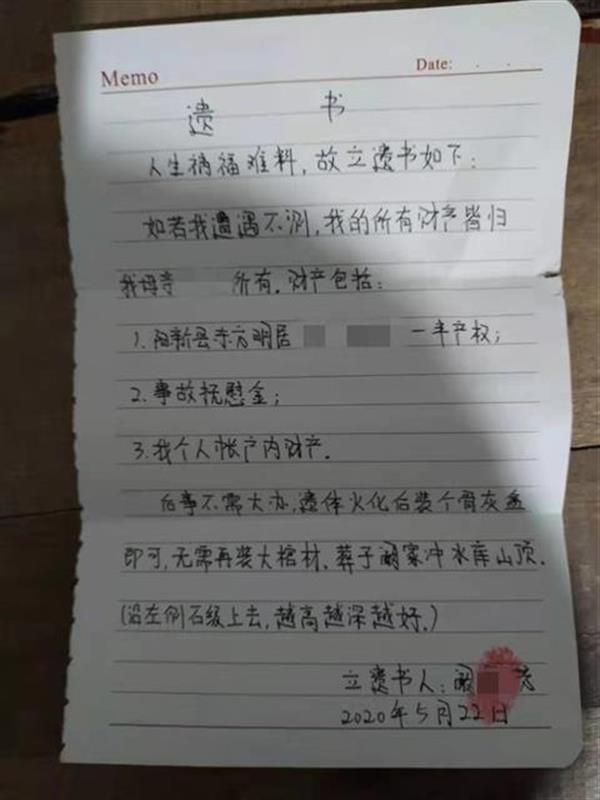 Memo
Date: . .
遗 书
人生祸福难料,故立遗书如下:
如若我遭遇不测,我的所有财产皆归
我母亲 所有.财产包括:
1.阳新县东方明居 一半产权;
2.事故抚慰金;
3.我个人帐户内财产.
后事不需大办,遗体火化后装个骨灰盒
即可,无需再装大棺材.葬于阚家冲水库山顶.
(沿左侧石级上去,越高越深越好.)
立遗书人:阚 芳
2020年5月22日